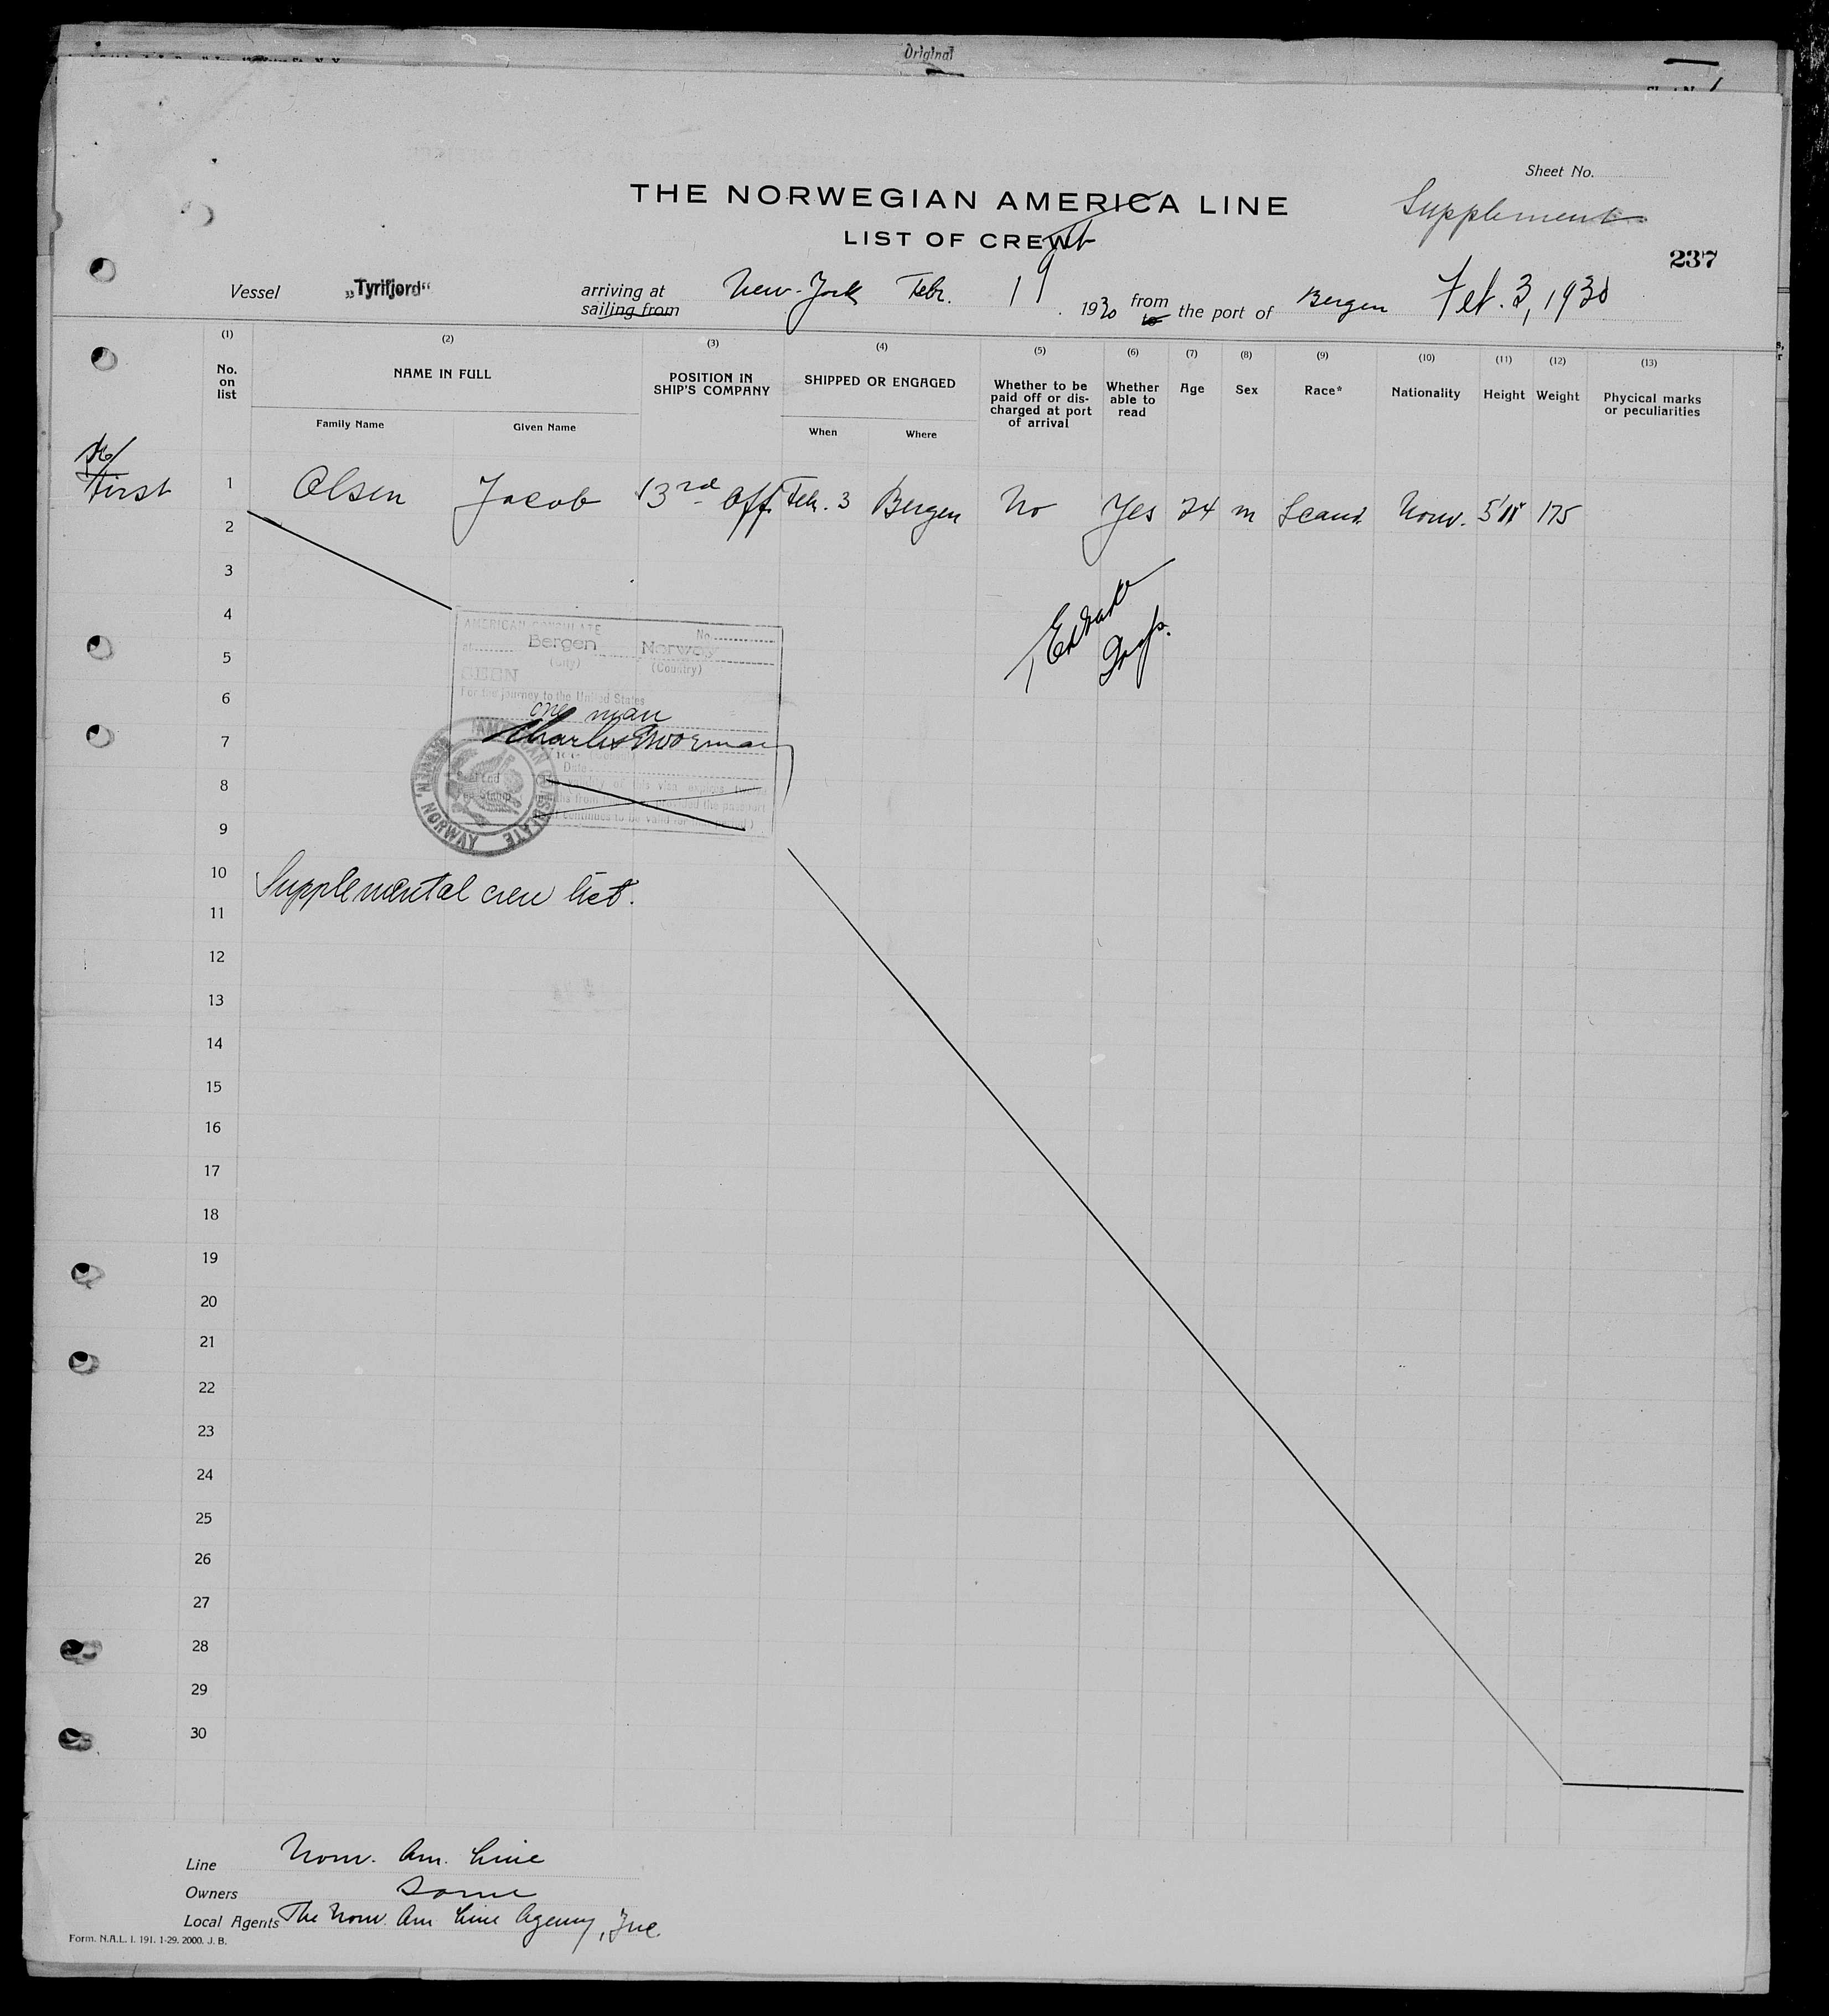 Original
Sheet No.
THE NORWEGIAN AMERICA LINE
Supplement
LIST OF CREW
237
Vessel „Tyrifjord“ arriving at sailing from New-York Febr. 19 1930 from to the port of Bergen Feb. 3, 1930
(1) (2) (3) (4) (5) (6) (7) (8) (9) (10) (11) (12) (13)
No. on list NAME IN FULL POSITION IN SHIP'S COMPANY SHIPPED OR ENGAGED Whether to be paid off or dis-charged at port of arrival Whether able to read Age Sex Race* Nationality Height Weight Phycical marks or peculiarities
Family Name Given Name When Where
First 1 Olsen Jacob 3rd Off. Febr. 3 Bergen No Yes 24 m Scand. Norw. 5'11" 175
2
3
4
AMERICAN CONSULATE No.
5
at Bergen Norway
(City) (Country)
SEEN
6
For the journey to the United States
one man
7
8
9
AMERICAN CONSULATE BERGEN, NORWAY
10
Supplemental crew list.
11
12
13
14
15
16
17
18
19
20
21
22
23
24
25
26
27
28
29
30
Line Norw. Am. Line
Owners Same
Local Agents The Norw. Am Line Agency, Inc.
Form. N.A.L. I. 191. 1-29. 2000. J. B.